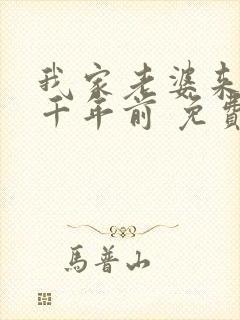 我家老婆来
千年前 免費
馬普山